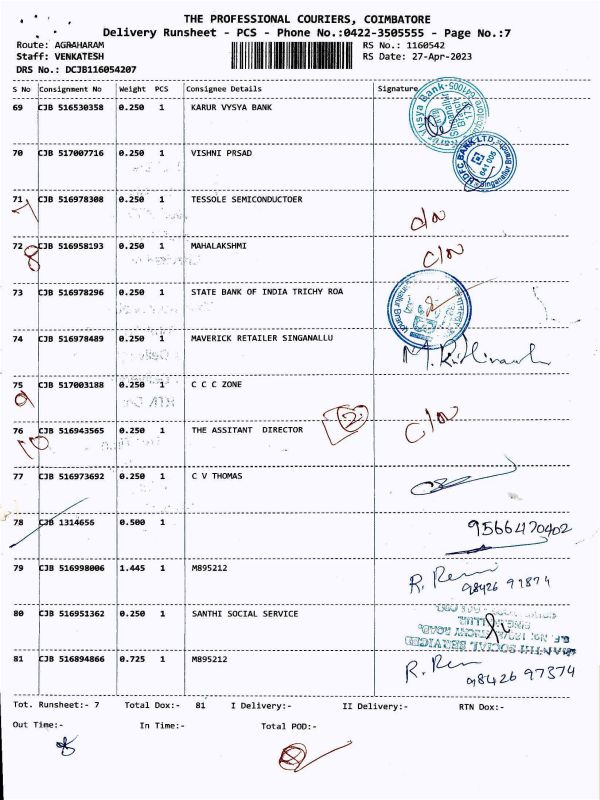 THE PROFESSIONAL COURIERS, COIMBATORE
Delivery Runsheet - PCS - Phone No.:0422-3505555 - Page No.:7
Route: AGRAHARAM RS No.: 1160542
Staff: VENKATESH RS Date: 27-Apr-2023
DRS No.: DCJB116054207
S No Consignment No Weight PCS Consignee Details Signature
69 CJB 516530358 0.250 1 KARUR VYSYA BANK
70 CJB 517007716 0.250 1 VISHNI PRSAD
HDFC BANK LTD.
641 005
71 CJB 516978308 0.250 1 TESSOLE SEMICONDUCTOER
7
72 CJB 516958193 0.250 1 MAHALAKSHMI
8
73 CJB 516978296 0.250 1 STATE BANK OF INDIA TRICHY ROA
74 CJB 516978489 0.250 1 MAVERICK RETAILER SINGANALLU
75 CJB 517003188 0.250 1 C C C ZONE
9
76 CJB 516943565 0.250 1 THE ASSITANT DIRECTOR
10
77 CJB 516973692 0.250 1 C V THOMAS
78 CJB 1314656 0.500 1 9566470402
79 CJB 516998006 1.445 1 M895212
R.
80 CJB 516951362 0.250 1 SANTHI SOCIAL SERVICE
SANTHI SOCIAL SERVICES
81 CJB 516894866 0.725 1 M895212
R. 98426 97374
Tot. Runsheet:- 7 Total Dox:- 81 I Delivery:- II Delivery:- RTN Dox:-
Out Time:- In Time:- Total POD:-